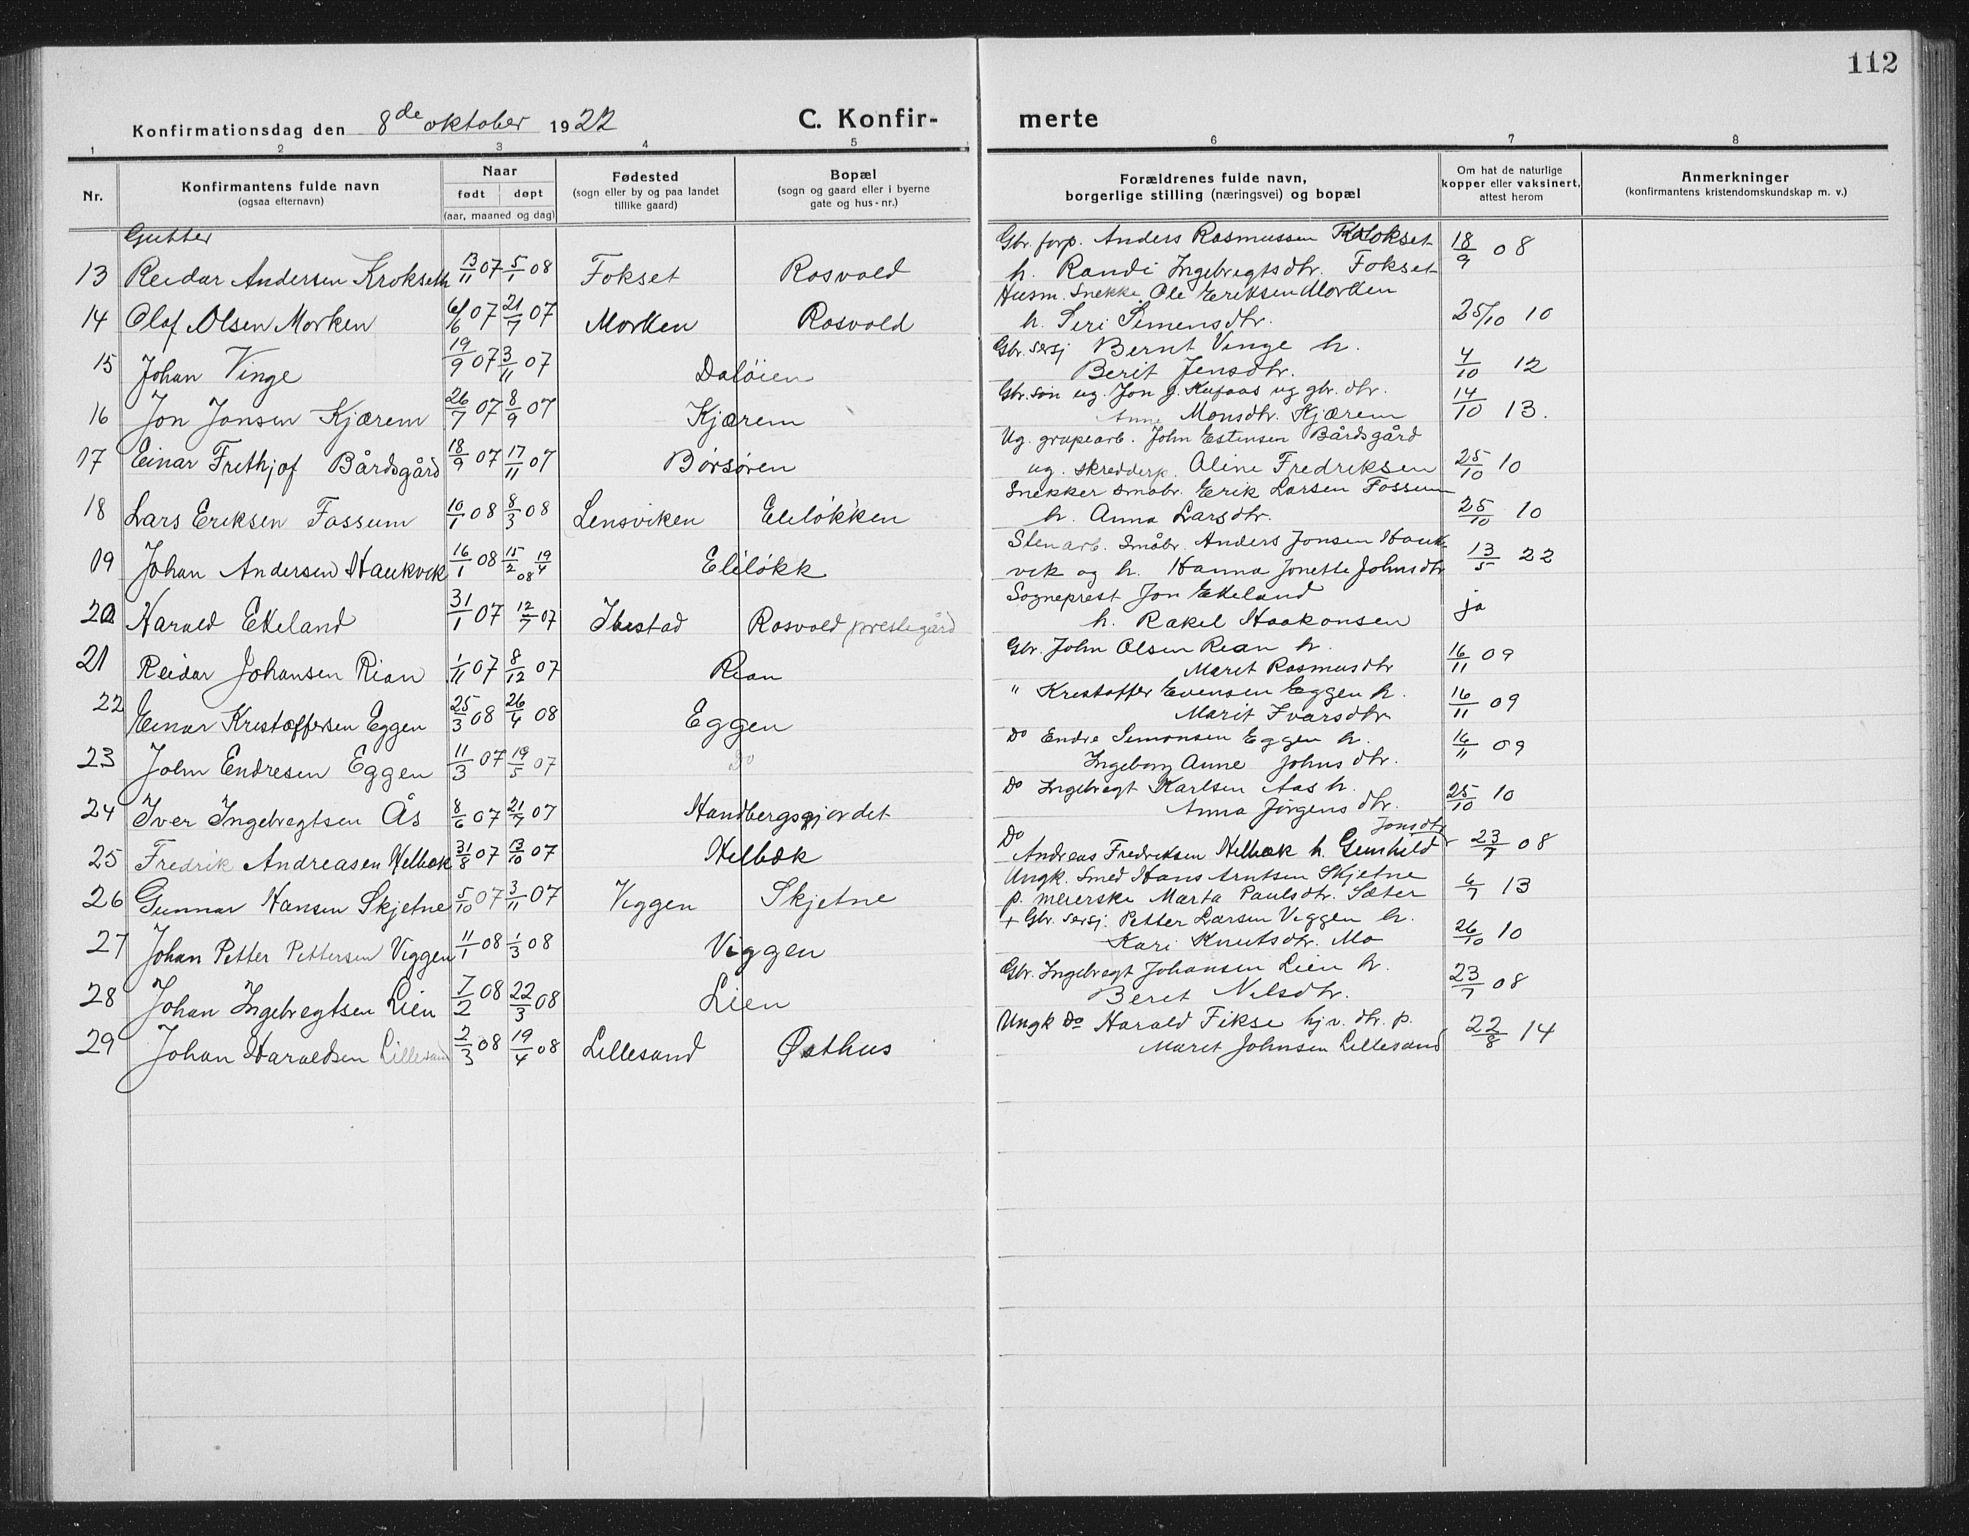 112
Konfirmationsdag den 8de oktober 1922
C. Konfirmerte
1 2 3 4 5 6 7 8
Nr.
Konfirmantens fulde navn
(ogsaa efternavn)
Naar
født døpt
(aar, maaned og dag)
Fødested
(sogn eller by og paa landet
tillike gaard)
Bopæl
(sogn og gaard eller i byerne
gate og hus-nr.)
Forældrenes fulde navn,
borgerlige stilling (næringsvei) og bopæl
Om hat de naturlige
kopper eller vaksinert,
attest herom
Anmerkninger
(konfirmantens kristendomskundskap m. v.)
Gutter
13 Reidar Andersen Krokseth 13/11 07 5/1 08 Fokset Rosvold Gbr. forp. Anders Rasmussen 18/9 08
h. Randi Ingebregtsdtr. Fokset
14 Olaf Olsen Morken 07 21/7 07 Morken Rosvold Husm. Snekke. Ole Eriksen Morken 25/10 10
h. Siri Simensdtr.
15 Johan Vinge 19/9 07 3/11 07 Daløien Gbr. sersj Bernt Vinge h. 4/10 12
Berit Jensdtr.
16 Jon Jonsen Kjærem 26/7 07 8/9 07 Kjærem Gbr. søn ug. Jon J. Kufaas ug gbr. dtr. 14/10 13.
Anne Monsdtr. Kjærem
17 Einar Frithjof Bårdsgård 18/9 07 17/11 07 Børsøren Ug. grupearb. John Estensen Bårdsgård
ug. skredderp. Aline Fredriksen 25/10 10
18 Lars Eriksen Fossum 10/1 08 8/3 08 Lensviken Eliløkken Snekker småbr. Erik Larsen Fossum
h. Anna Larsdtr. 25/10 10
19 Johan Andersen Haukvik 16/1 08 15/2 08 19/4 Eliløkk Stenarb. Småbr. Anders Jonsen Hauk-
vik og h. Hanna Jonette Johnsdtr 13/5 22
20 Harald Ekeland 31/1 07 12/7 07 Ibestad Rosvold prestegård Sogneprest Jon Ekeland ja
h. Rakel Haakonsen
21 Reidar Johansen Rian 1/11 07 8/12 07 Rian Gbr. John Olsen Rian h. 16/11 09
Maret Rasmusdtr
22 Einar Kristoffersen Eggen 25/3 08 26/4 08 Eggen " Kristoffer Evensen Eggen h. 16/11 09
Marit Ivarsdtr
23 John Endresen Eggen 11/3 07 19/5 07 Do Do Endre Simonsen Eggen h. 16/11 09
Ingeborg Anne Johnsdtr.
24 Iver Ingebregtsen Ås 8/6 07 21/7 07 Handbergsgjordet Do Ingebregt Karlsen Aas h. 25/10 10
Anna Jørgensdtr.
25 Fredrik Andreasen Helbæk 31/8 07 13/10 07 Helbæk Do Jonsdtr
Andreas Fredriksen Helbæk h. Gunhild 23/7 08
26 Gunnar Hansen Skjetne 5/10 07 3/11 07 Viggen Skjetne Ungk. Smed Hans Arntsen Skjetne 6/7 13
p. meierske Marta Paulsdtr. Sæter
27 Johan Petter Pettersen Viggen 11/1 08 1/3 08 Viggen + Gbr. sersj. Petter Larsen Viggen h.
Kari Knutsdtr. Mo 26/10 10
28 Johan Ingebregtsen Lien 7/2 08 22/3 08 Lien Gbr. Ingebregt Johansen Lien h. 23/7 08
Beret Nilsdtr.
29 Johan Haraldsen Lillesand 2/3 08 19/4 08 Lillesand Østhus Ungk Do Harald Fikse hjv. dtr. p. 22/8 14
Maret Johnsen Lillesand